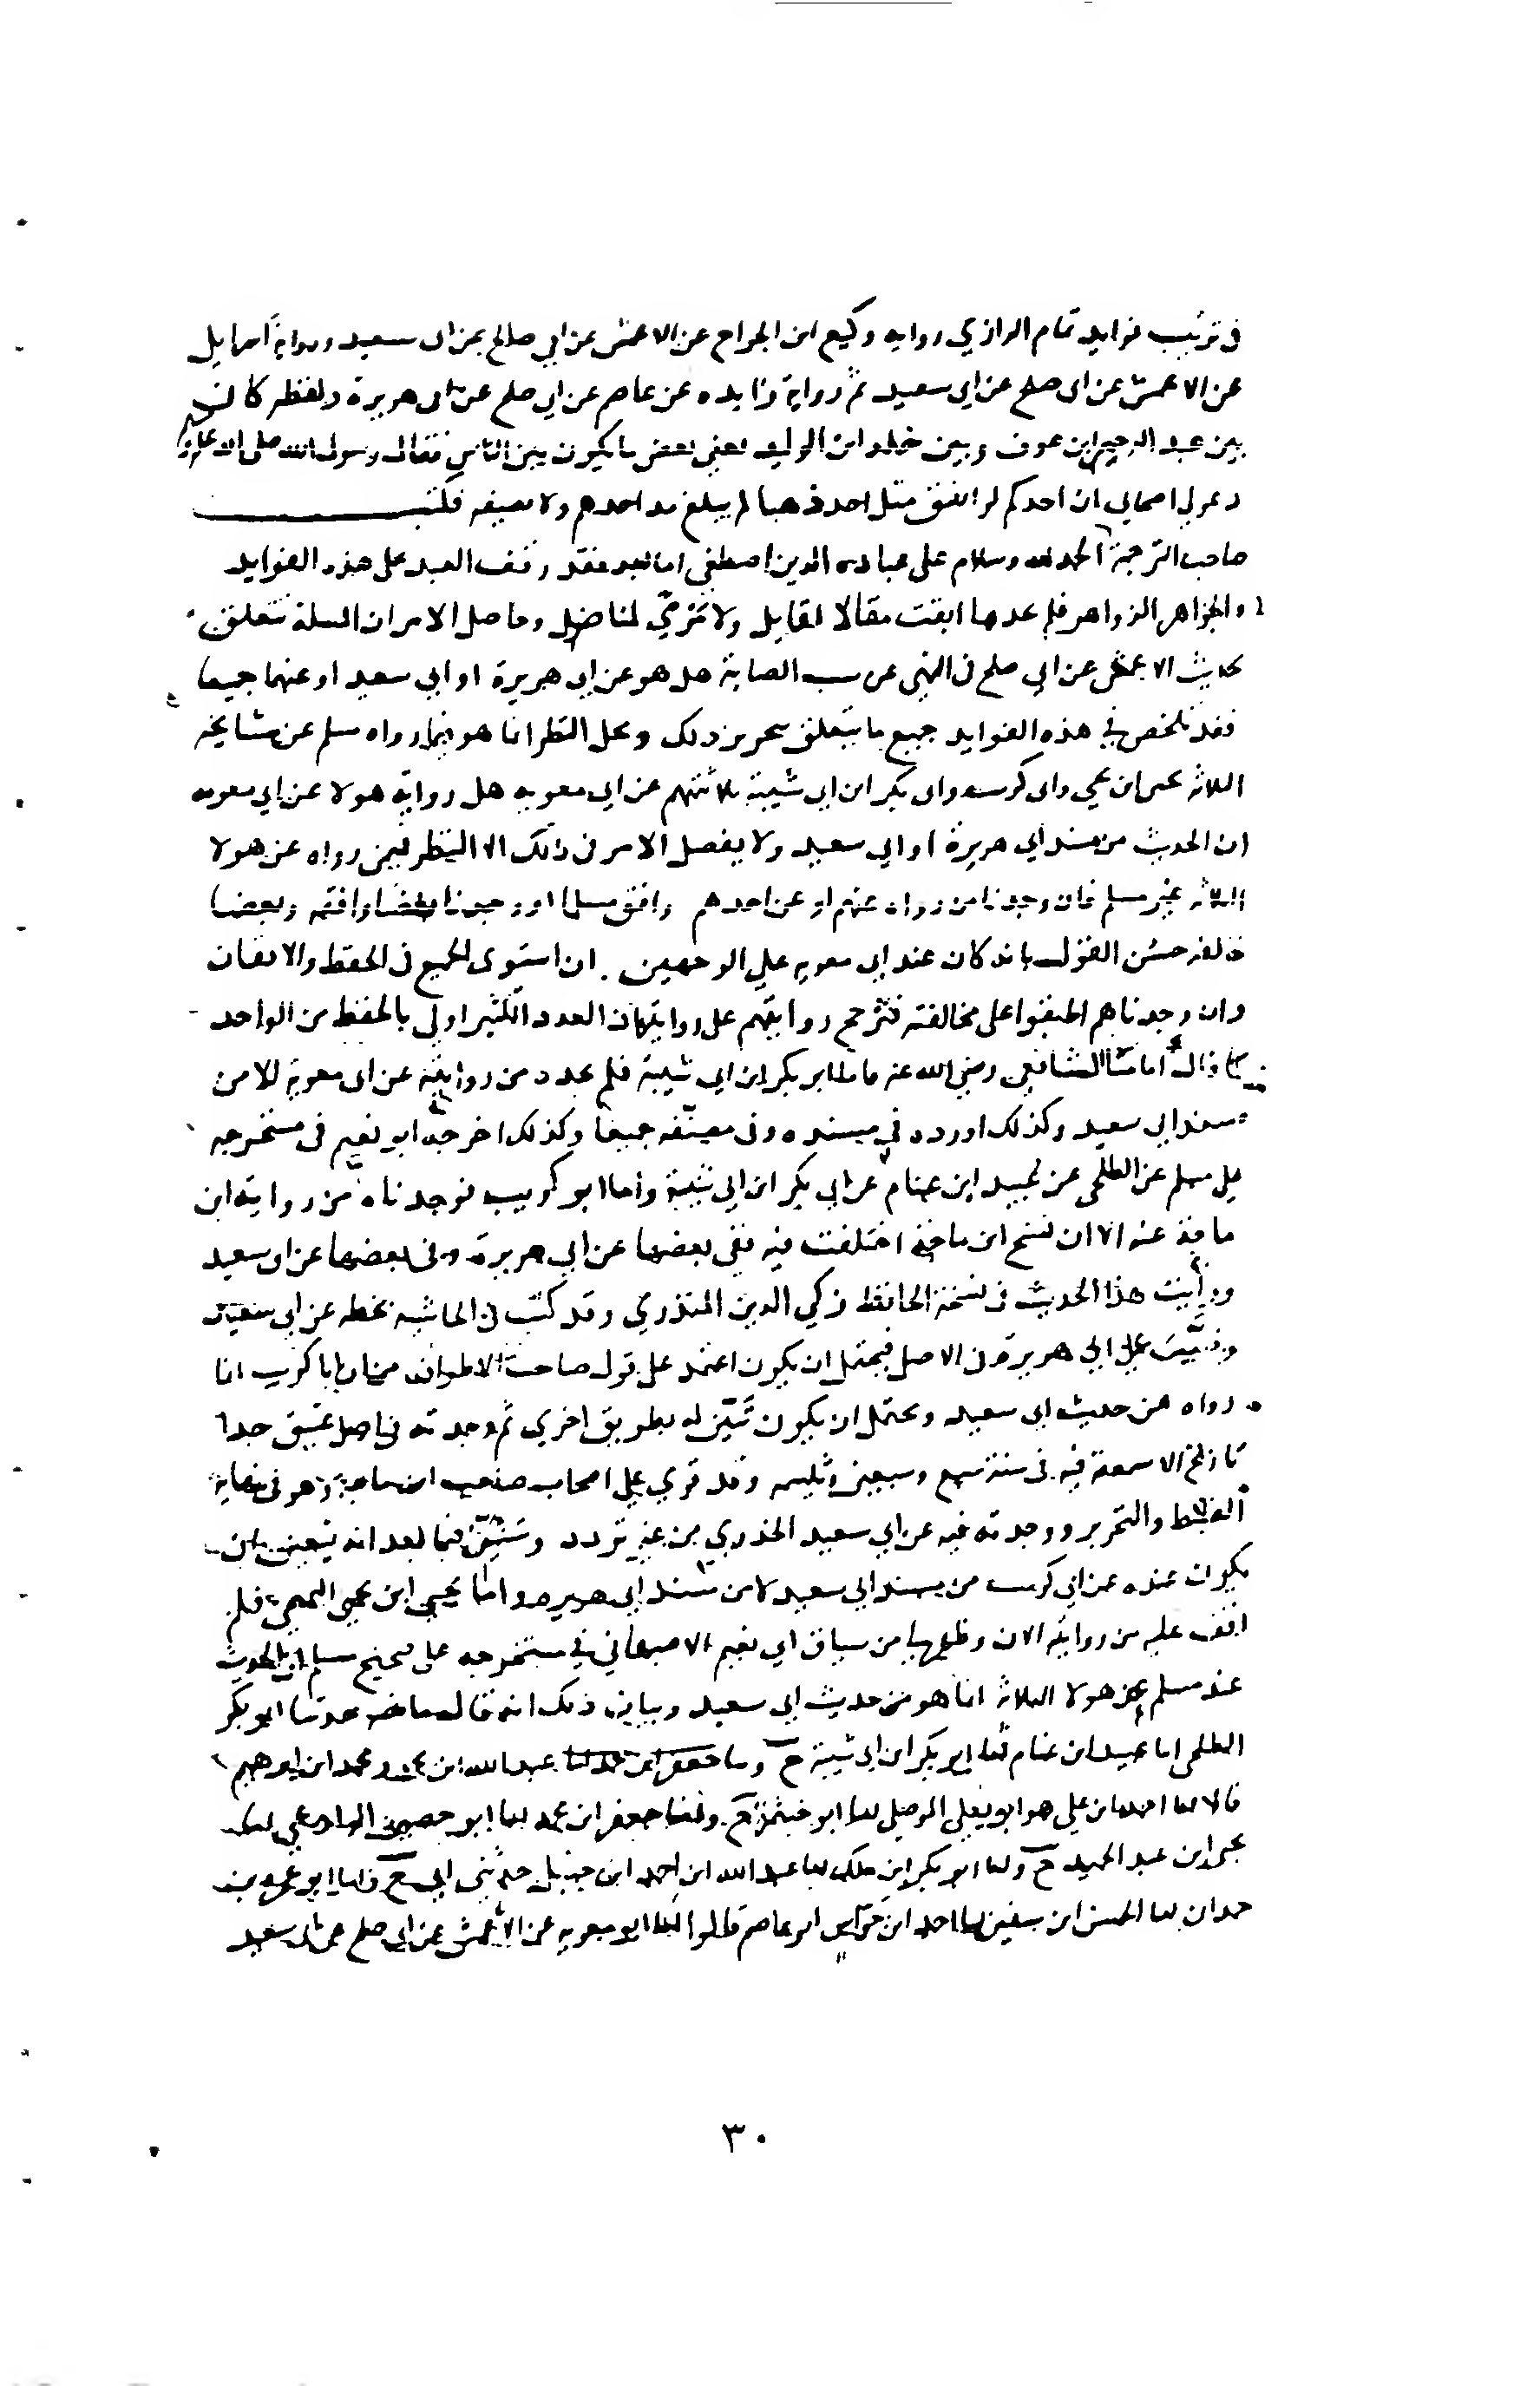 في ترتيب فوايد تمام الرازي روايه وكيع ابن الجراح عن الاعمش عن ابي صالح عن ابى سعيد ورواية اسرايل
عن الاعمش عن ابى صلح عن ابي سعيد ثم رواية زايده عن عاصم عن ابي صلح عن ابى هريرة ولفظه كان
بين عبد الرحمن ابن عوف وبين خالد ابن الوليد يعني بعض ما يكون بين الناس فقال رسول الله صلى الله عليه
دعو لي اصحابي ان احدكم لو انفق مثل احد ذهبا لم يبلغ مد احدهم ولا نصيفه فكتب
صاحب الترجمة الحمد لله وسلام على عباده الدين اصطفى اما بعد فقد وقف العبد على هذه الفوايد
والجواهر الزواهر فلم ابقت مقالا لقايل ولا مرمى لمناضل وحاصل الامر ان المسلة تتعلق
بحديث الاعمش عن ابي صلح في النهي عن سب الصحابة هل هو عن ابي هريرة او ابي سعيد او عنهما جميعا
فقد تلخص في هذه الفوايد جميع ما يتعلق بتحرير ذلك ومحل النظر انما هو فيما رواه مسلم عن مشايخه
الثلاثه يحيى ابن يحيى وابى كريب وابى بكر ابن ابي شيبة ثلاثتهم عن ابي معويه هل رواية هولا عن ابي معويه
ان الحديث من مسند ابي هريرة او ابي سعيد ولا يفصل الامر في ذلك الا النظر فيمن رواه عن هولا
الثلاثه غير مسلم فان وجدنا من رواه عنهم او عن احدهم وافق مسلما او وجدنا بعضا وافقه وبعضا
خالفه حسن القول بانه كان عند ابي معويه على الوجهين ان استوى الجميع في الحفظ والاتقان
وان وجدناهم اطبقوا على مخالفته فترجح روايتهم على روايته لان العدد الكثير اولى بالحفظ من الواحد
كما قال امامنا الشافعي رضي الله عنه فاما ابو بكر ابن ابي شيبة فلم نجده من روايته عن ابى معوية الا من
مسند ابي سعيد وكذلك اورده في مسنده وفى مصنفه جميعا وكذلك اخرجه ابو نعيم في مستخرجه
على مسلم عن الطلحى عن عبيد ابن غنام عن ابي بكر ابن ابي شيبة واما ابو كريب فوجدناه من رواية ابن
ماجة عنه الا ان نسخ ابن ماجه اختلفت فيه ففي بعضها عن ابي هريرة وفى بعضها عن ابى سعيد
ورايت هذا الحديث في نسخة الحافظ زكي الدين المنذري وقد كتب في الحاشيه بخطه عن ابي سعيد
وضبب على ابي هريرة في الاصل فيحتمل ان يكون اعتمد على قول صاحب الاطراف من ان ابا كريب انما
رواه من حديث ابي سعيد ويحتمل ان يكون تبين له بطريق اخري ثم وجدته في اصل عتيق جدا
تاريخ السمعة فيه في سنة سبع وسبعين وثلثميه وقد قري على اصحاب صاحب ابن ماجة وهو فى نهاية
الضبط والتحرير ووجدته فيه عن ابي سعيد الخدري من غير تردد وسنبين فيما بعد انه يتعين بان
يكون عنده عن ابي كريب من مسند ابي سعيد لا من مسند ابي هريره واما يحيى ابن يحيى التميمي فلم
اقف عليه من روايته الان وظهر لي من سياق ابي نعيم الاصبهاني في مستخرجه على صحيح مسلم ان الحديث
عند مسلم عن هولا الثلاثه انما هو من حديث ابي سعيد وبيان ذلك انه قال ما نصه حدثنا ابو بكر
الطلحى انا عبيد ابن غنام ثنا ابو بكر ابن ابي شيبة ح وثنا جعفر ابن محمد ثنا عبد الله ابن محمد ومحمد ابن ابرهيم
قالا ثنا احمد ابن علي هو ابو يعلى الموصلي ثنا ابو خيثمة ح وثنا جعفر ابن محمد ثنا ابو حصين الوادعي ثنا
يحيى ابن عبد الحميد ح وثنا ابو بكر ابن ملك ثنا عبد الله ابن احمد ابن حنبل حدثني ابي ح وثنا ابو عمرو بن
حمدان ثنا الحسن ابن سفين ثنا احمد ابن جواس ابو عاصم قالوا ثنا ابو معويه عن الاعمش عن ابي صلح عن ابى سعيد
٣٠